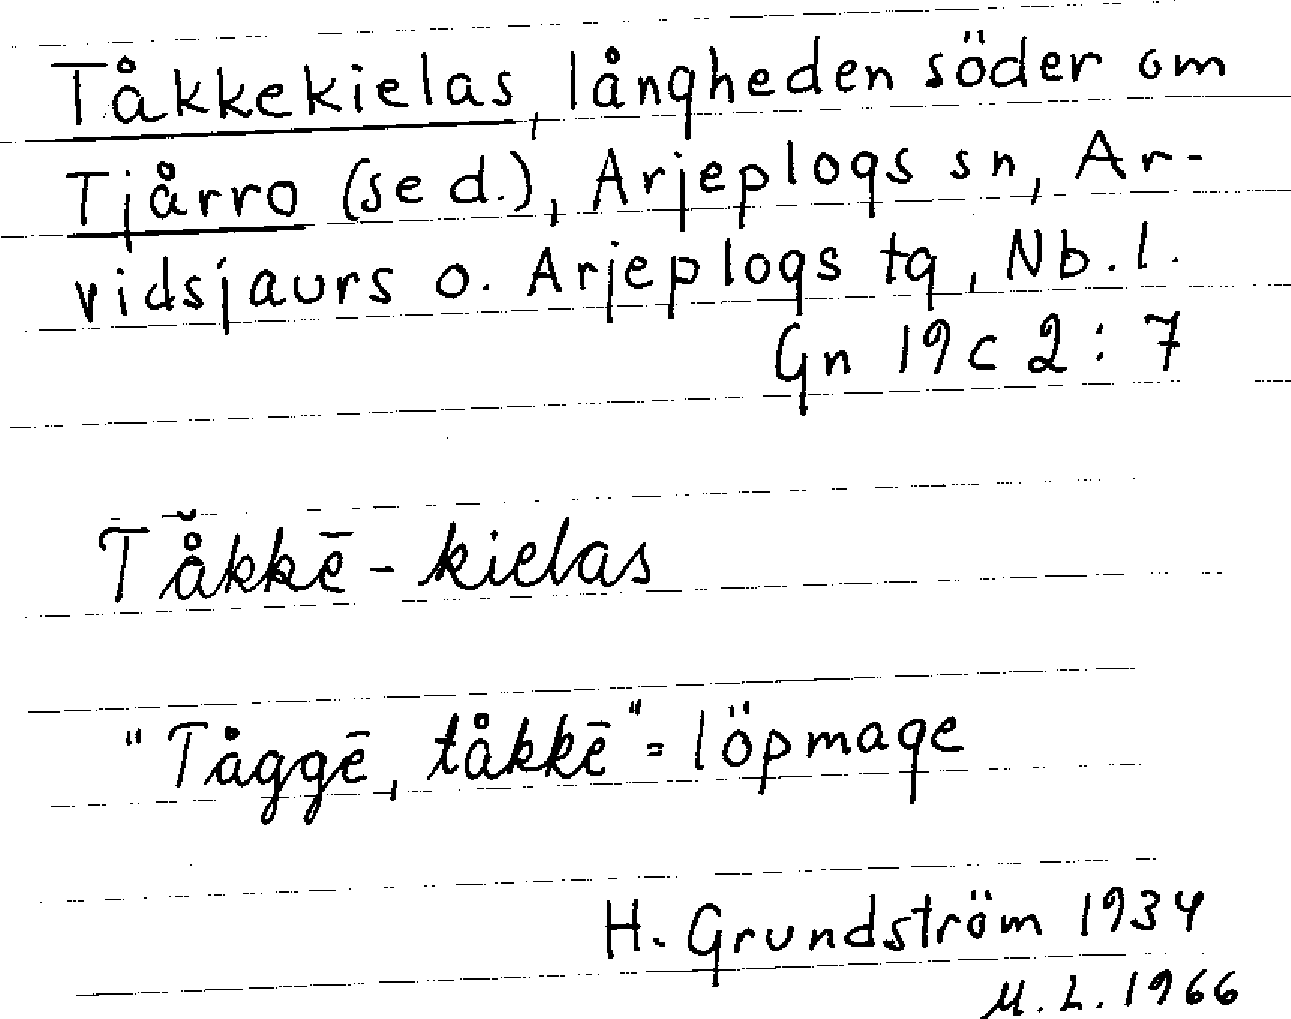 Tåkkekielas, långheden söder om
Tjårro (se d.), Arjeplogs sn, Ar-
vidsjaurs o. Arjeplogs tg, Nb.l.
Gn 19c 2:7
Tå̆kkē-kielas
"Tåggē, tåkkē" = löpmage
H. Grundström 1934
M.L. 1966